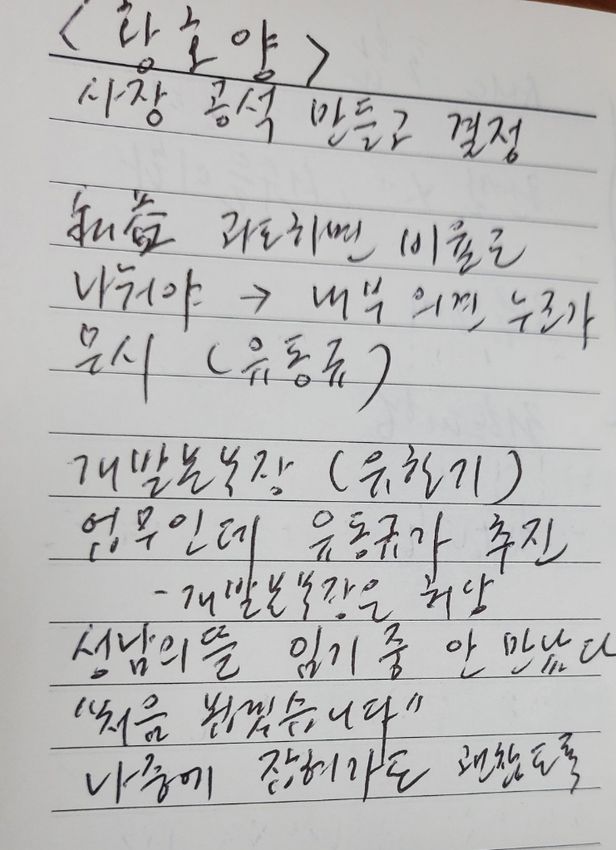 <황호양>
사장 공석 만들고 결정
利益 과도하면 비율로
나눠야 → 내부 의견 누군가
무시 (유동규)
개발본부장 (유한기)
업무인데 유동규가 추진
-개발본부장은
성남의뜰 임기 중 안 만났다
"처음 뵙겠습니다"
나중에 잡혀가도 괜찮도록